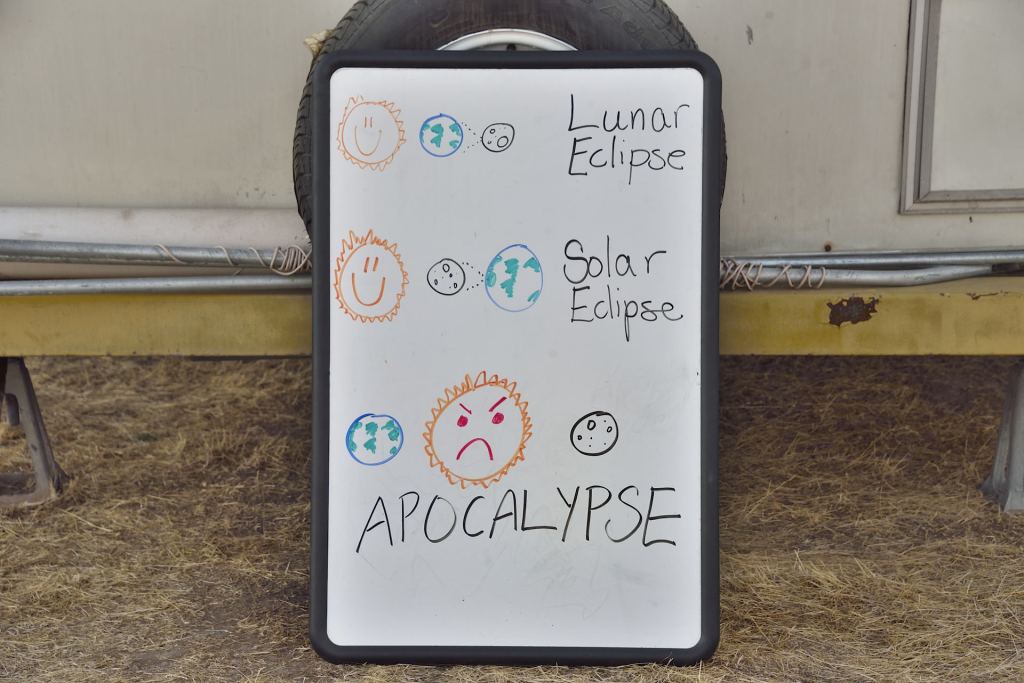 Lunar
Eclipse
Solar
Eclipse
APOCALYPSE